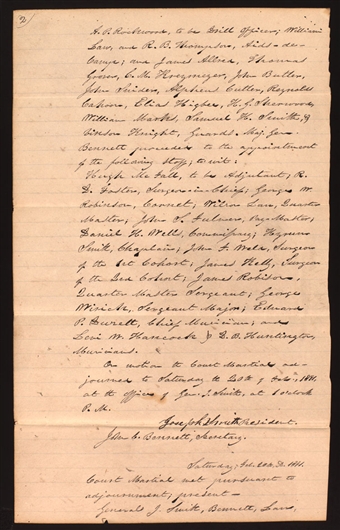 2
A. P. Rockwood, to be Drill Officer; William
Law, and R. B. Thompson, Aids-de-
Camp; and James Allred, Thomas
Grover, C. M. Kreymeyer, John Butler,
John Snider, Alpheus Cutler, Reynolds
Cahoon, Elias Higbee, H. G. Sherwood,
William Marks, Samuel H. Smith, &
Vinson Knight, Guards. Maj. Gen.
Bennett proceeded to the appointment
of the following Staff; to wit:
Hugh McFall, to be Adjutant; R.
D. Foster, Surgeon-in-Chief; George W.
Robinson, Cornet; Wilson Law, Quarter
Master; John S. Fulmer, Pay Master;
Daniel H. Wells, Commissary; Hyrum
Smith, Chaplain; John F. Weld, Surgeon
of the 1st Cohort; James Kelly, Surgeon
of the 2nd Cohort; James Robison,
Quarter Master Sergeant; George
Wirick, Sergeant Major; Edward
P. Duzett, Chief Musician; and
Levi W. Hancock & D. B. Huntington,
Musicians.
On motion the Court Martial ad-
journed to Saturday the 20th of Feb., 1841,
at the office of Gen. J. Smith, at 1 oclock
P. M.
Joseph Smith President.
John C. Bennett, Secretary.
Saturday, Feb. 20th, 1841.
Court Martial met pursuant to
adjournment; present —
Generals J. Smith, Bennett, Law,